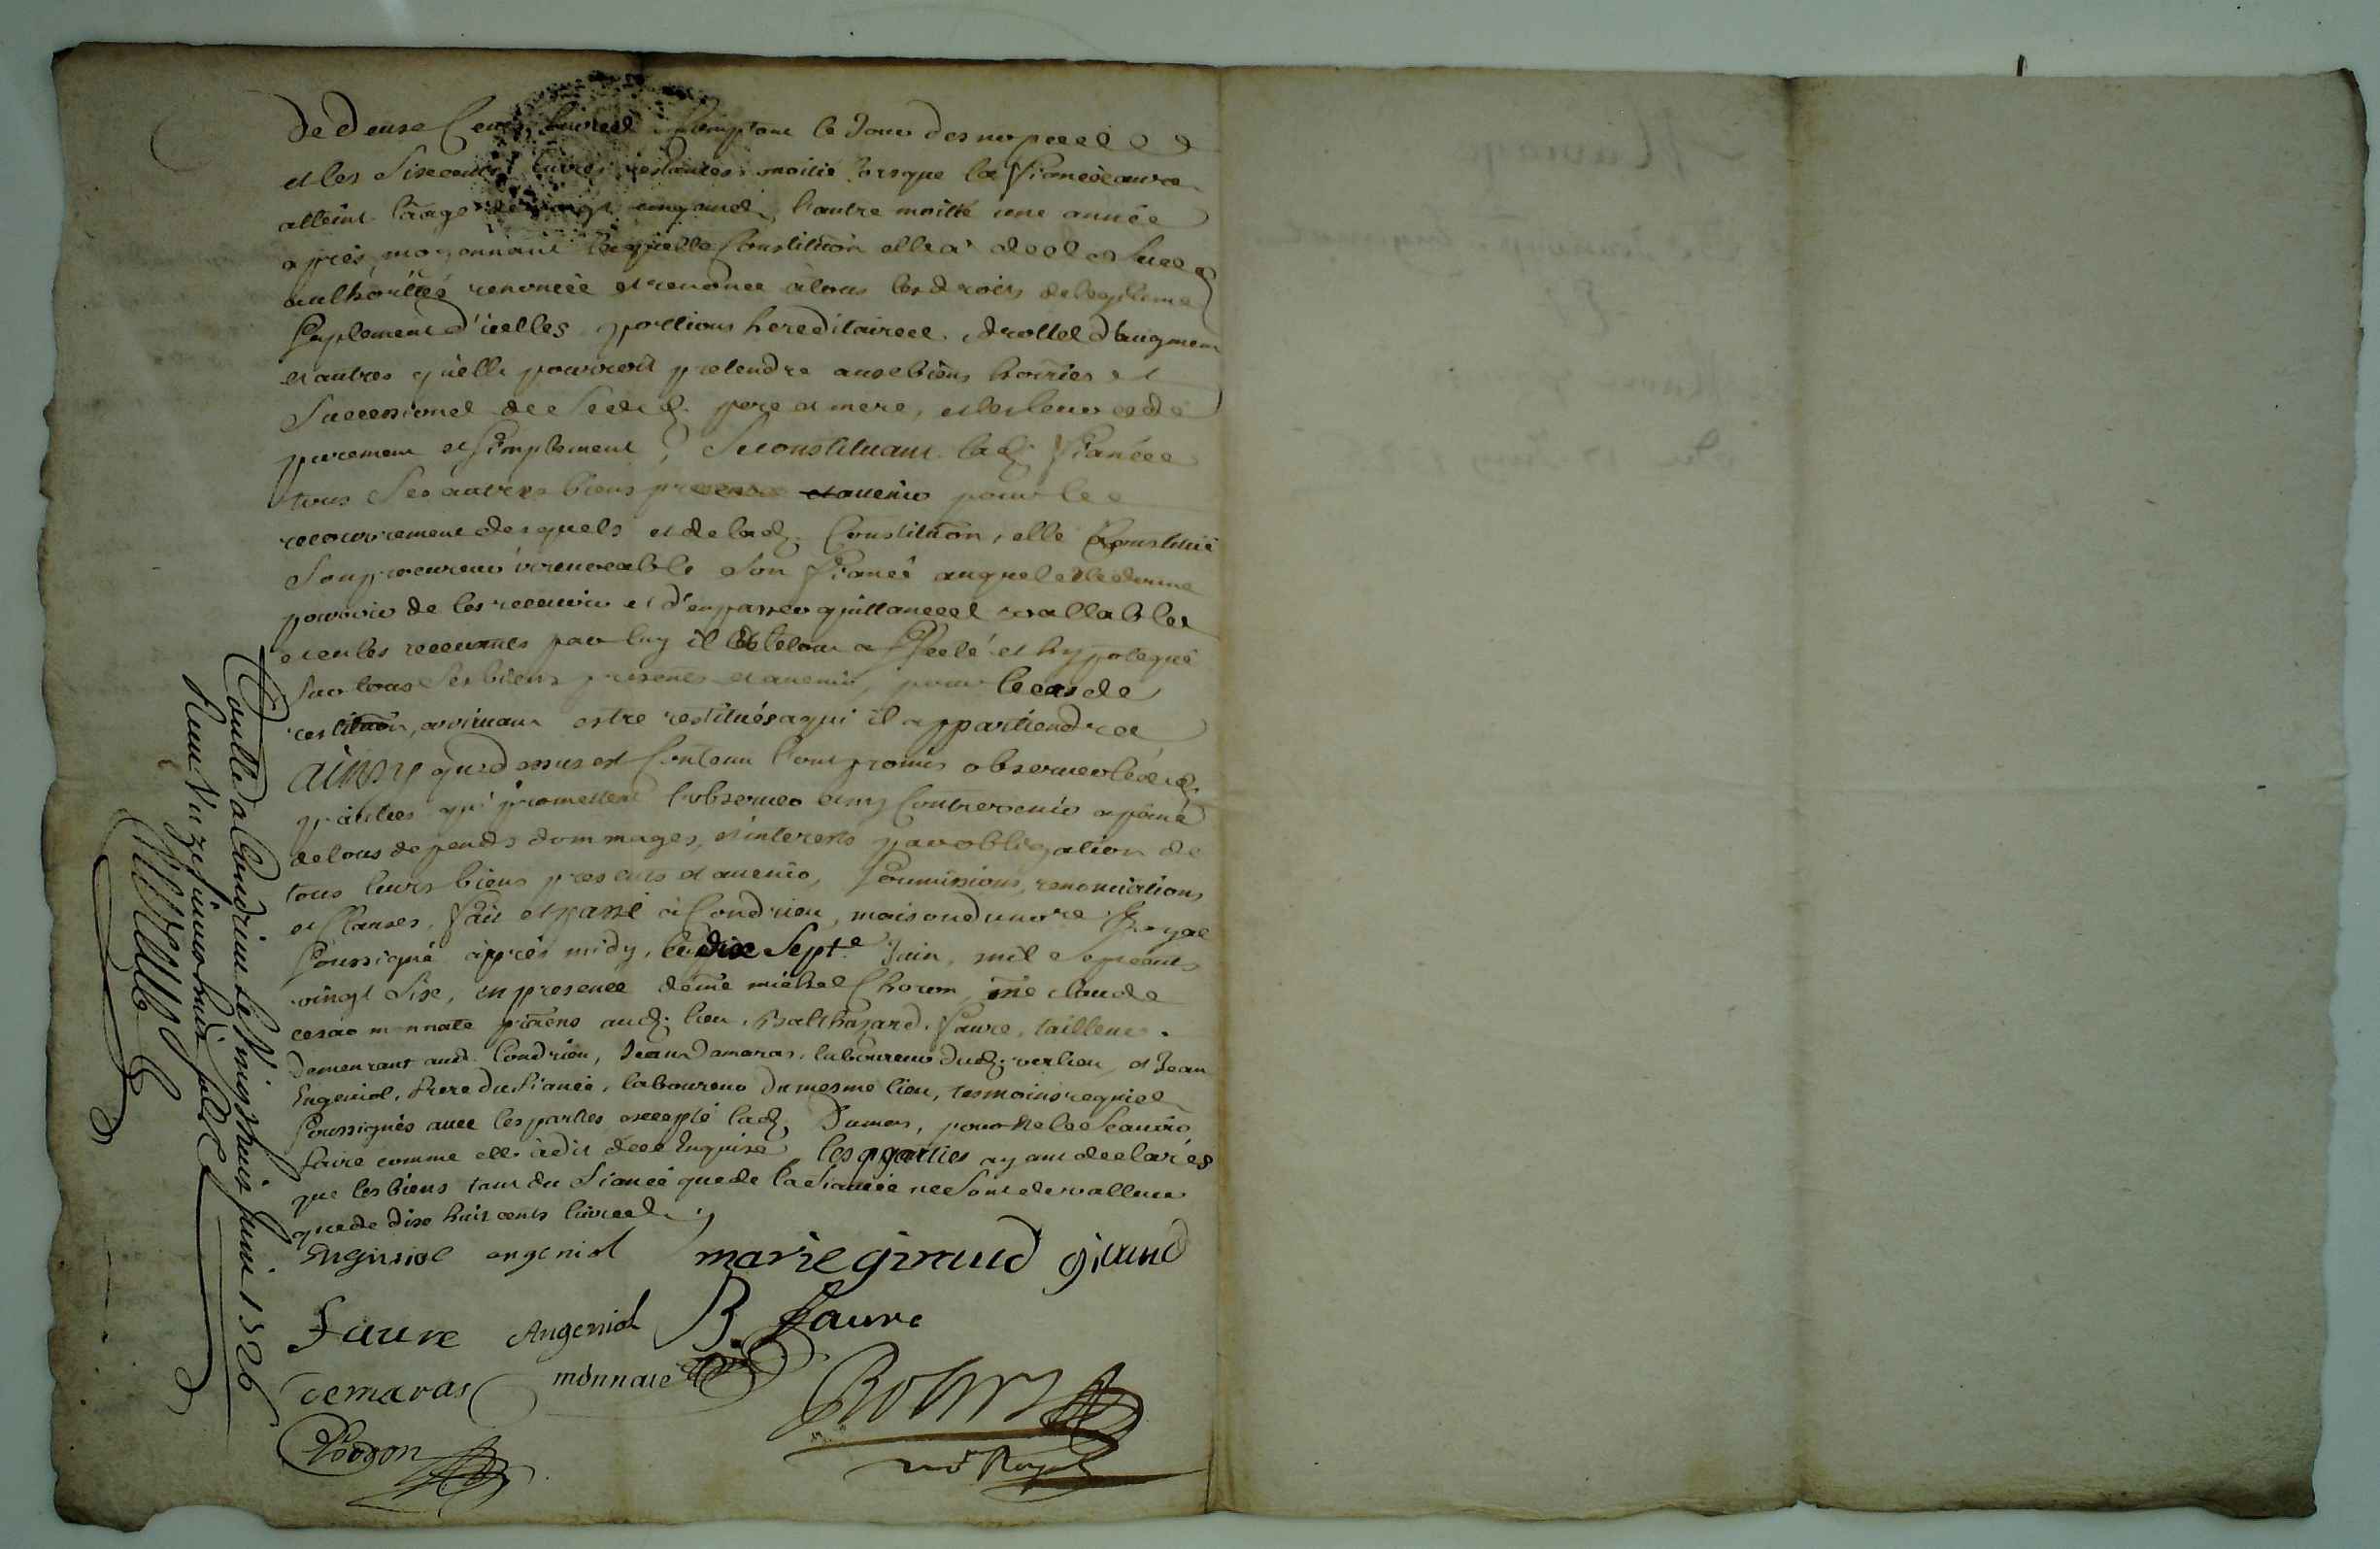 de deux cents livres comptant le Jour des nopces
et les Six cents livres restantes moitié lorsque la fiancée aura
atteint l'aage de vingt cinq ans, l'autre moitié une année
après, moyennant laquelle Constituôn elle a
authorittée renoncée et renonce à tous les droits de legitime
suplement d'icelles portions hereditaires, droits d'augment
et autres qu'elle pourroit pretendre aux biens hoiries et
Successions de pere et mere, et les leur cede
purement et simplement, Se constituant lad. fiancée
tous Ses autres biens presents et avenir pour le
recouvrement desquels et de lad. Constituôn, elle constitué
Son procureur irrevocable Son fiancé auquel elle donne
pouvoir de les recevoir et d'en passer quittances vallables
et en les par luy il affecté et hypotequé
Sur tous Ses biens presents et avenir, pour le cas de
restituôn, arrivant estre restitués a qui il appartiendra
Ainsy que dessus est Contenu l'ont promis observer
parties qui promettent l'observer Contrevenir a peine
de tous depends dommages, et interests par obligation de
tous leurs biens presents et avenir, soumissions, renonciations
et Clauses, fait et passé à Condrieu, maison du nore Royal
soussigné après midy, le dix Sept.e Juin, mil Sept cents
vingt Six, en presence de me michel Choron, me claude
cesar monnate pratiens aud. lieu, Balthazard faure, tailleur
demeurant aud. Condrieu, Jean Damaras, laboureur dud. verlieu, et Jean
Engeniol, frere du fiancé, laboureur du mesme lieu, tesmoins requis
soussignés avec les parties excepté lad. Dumas, pour ne le Scavoir
faire comme elle a dit de ce Enquise, les parties ayant declarés
que les biens tant du fiancé que de la fiancée ne Sont de valleur
que de dix huit cents livres
Engeniol angeniol marie giraud giraud
faure Angeniol B. faure
demaras monnate
Robin
nore Royal
Conlle a Condrieu le Vingt huit Juin 1726